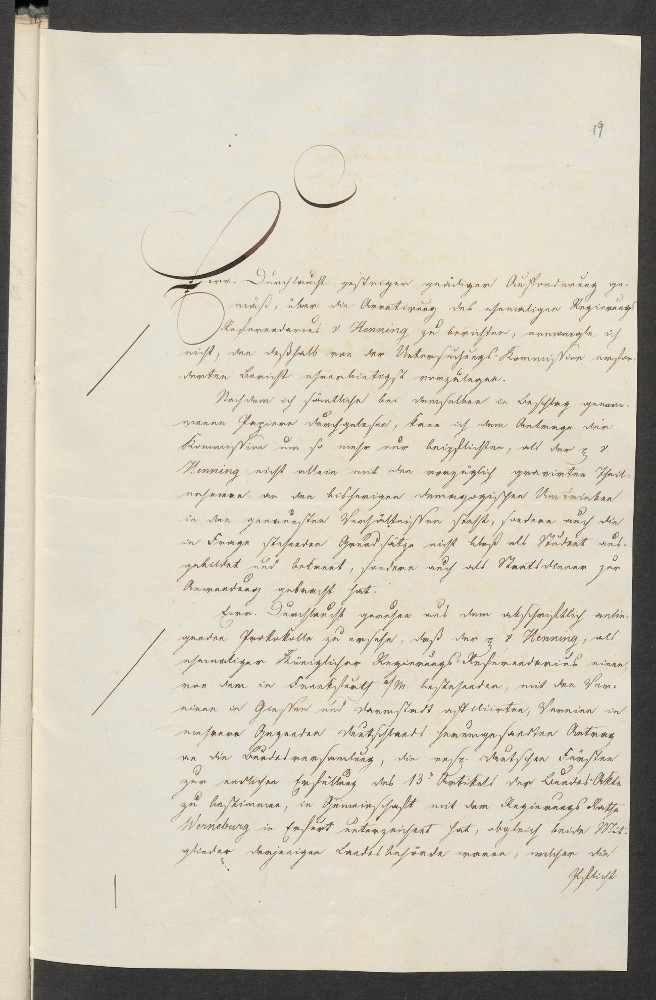 19
Euer. Durchlaucht gestriger gnädiger Aufforderung ge-
mäß, über die Arretirung des ehemaligen Regierungs
Referendarius v. Henning zu berichten, ermangle ich
nicht, den deßhalb von der Untersuchungs-Kommission erfor-
derten Bericht ehrerbietigst vorzulegen.
Nachdem ich sämtliche bei demselben in Beschlag genom-
menen Papiere durchgelesen, kann ich dem Antrage der
Kommission um so mehr nur beipflichten, als der v
Henning nicht allein mit den vorzüglich gravirten Theil-
nehmern an den bisherigen demagogischen Umtrieben
in den genauesten Verhältnissen steht, sondern auch die
in Frage stehenden Grundsätze nicht bloß als Student aus-
gebildet und bekannt, sondern auch als Staatsdiener zur
Anwendung gebracht hat.
Euer. Durchlaucht geruhen aus dem abschriftlich anlie-
genden Protokolle zu ersehn, daß der v Henning, als
ehemaliger Königlicher Regierungs-Referendarius einen,
von dem in Frankfurth a/M bestehenden, mit den Ver-
einen in Giessen und Darmstadt affiliirten, Vereine in
mehrere Gegenden Deutschlands herumgesandten Antrag
an die Bundesversammlung, die resp. Deutschen Fürsten
zur endlichen Erfüllung des 13t Artikels der Bundes-Akte
zu bestimmen, in Gemeinschaft mit dem Regierungs Rath
Werneburg in Erfurt unterzeichnet hat, obgleich beide Mit-
glieder derjenigen Landesbehörde waren, welcher die
Pflicht